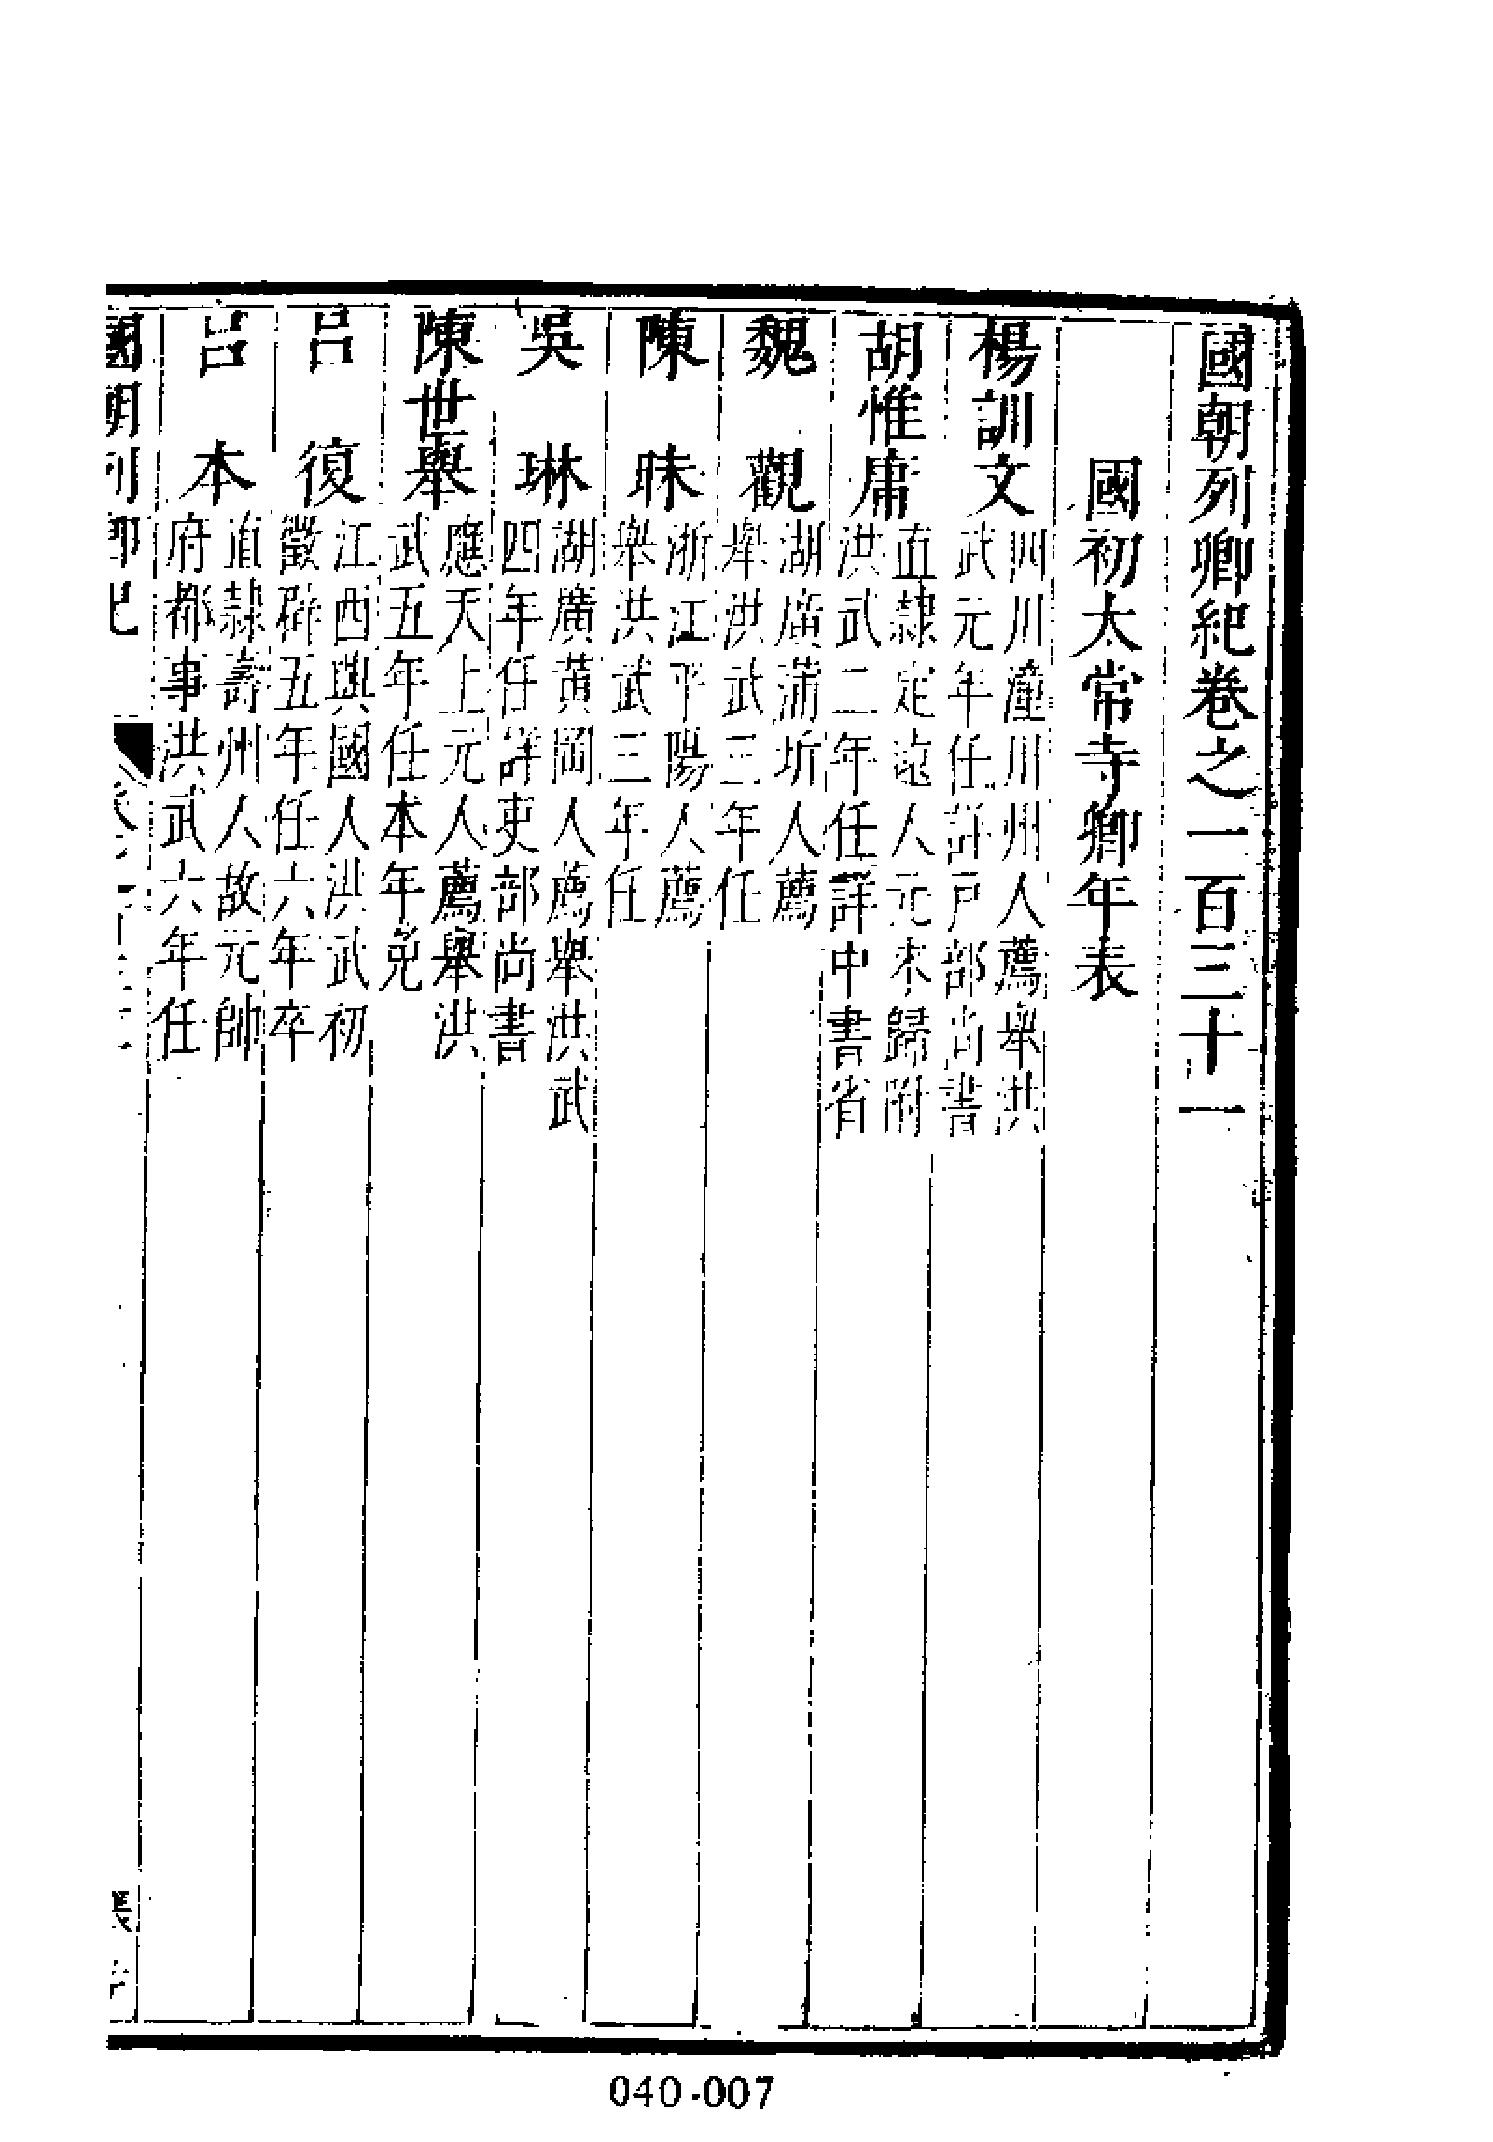 國朝列卿紀卷之一百三十一
國初太常寺卿年表
楊訓文
四川潼川州人薦舉洪
武元年任詳戶部尚書
胡惟庸
直隸定遠人元末歸附
洪武二年任詳中書省
魏觀
湖廣蒲圻人薦
舉洪武三年任
陳昧
浙江平陽人薦
舉洪武三年任
吳琳
湖廣黃岡人薦舉洪武
四年任詳吏部尚書
陳世舉
應天上元人薦舉洪
武五年任本年免
呂復
江西興國人洪武初
徵辟五年任六年卒
呂本
直隸壽州人故元帥
府都事洪武六年任
國朝列卿紀
卷之一百三十一
040-007